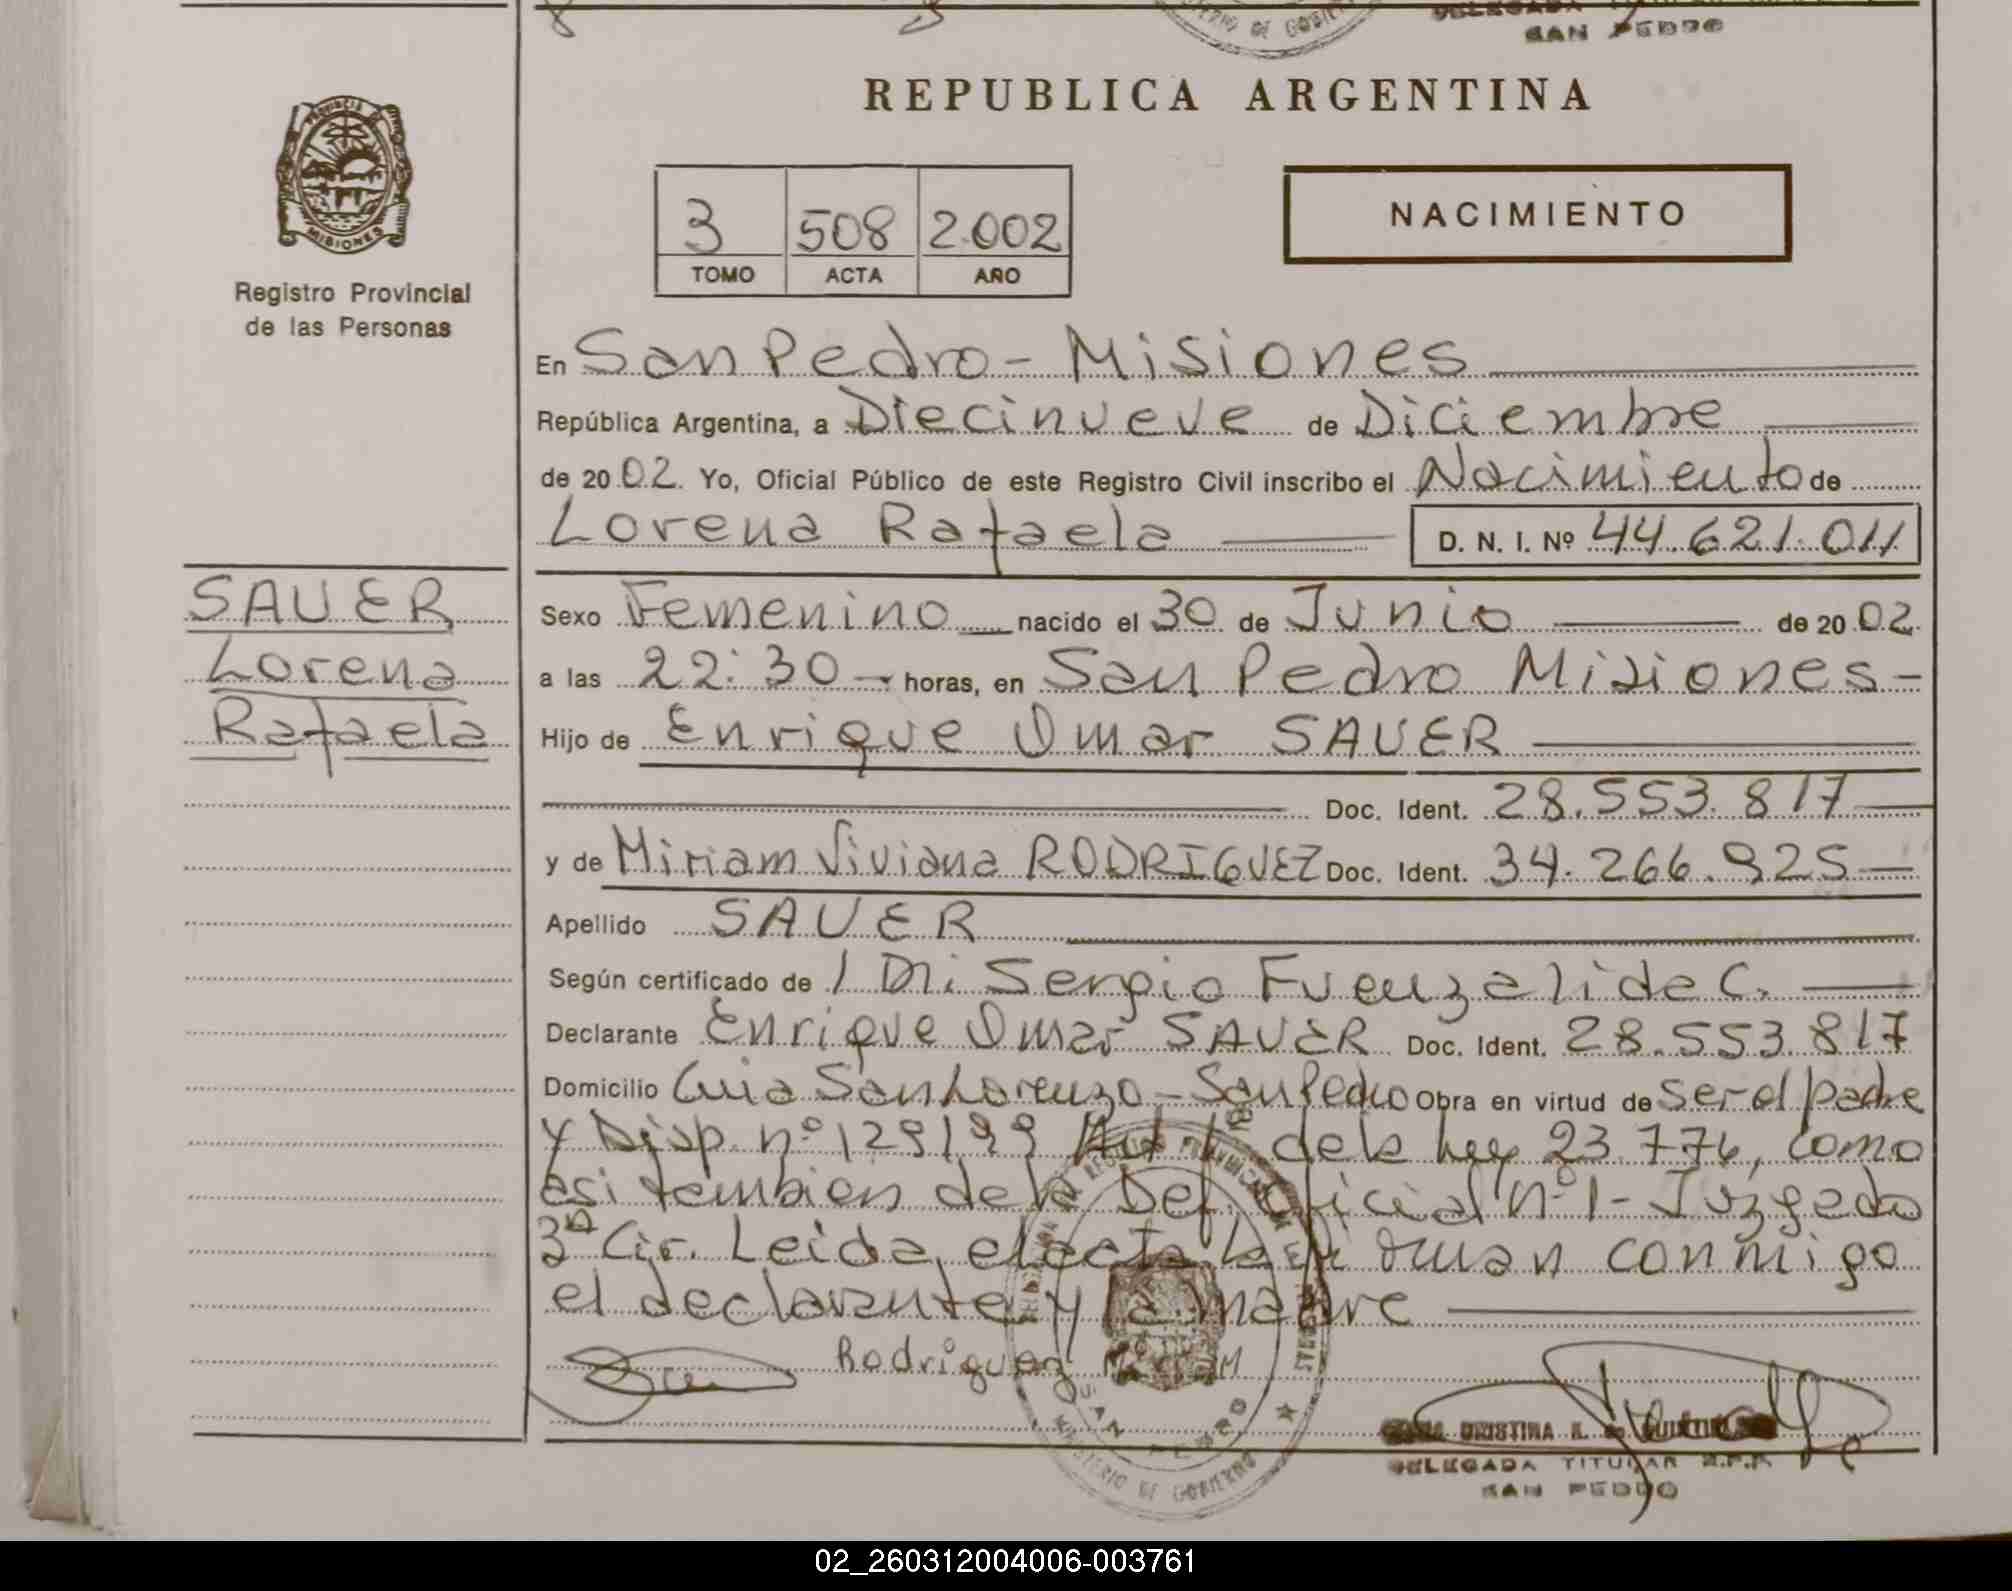 SAN PEDRO
REPUBLICA ARGENTINA
PROVINCIA
MISIONES
Registro Provincial
de las Personas
3 508 2.002
TOMO ACTA AÑO
NACIMIENTO
En San Pedro - Misiones
República Argentina, a Diecinueve de Diciembre
de 2002. Yo, Oficial Público de este Registro Civil inscribo el Nacimiento de
Lorena Rafaela D. N. I. Nº 44.621.011
SAUER
Lorena
Rafaela
Sexo Femenino nacido el 30 de Junio de 2002.
a las 22:30 horas, en San Pedro Misiones-
Hijo de Enrique Omar SAUER
Doc. Ident. 28.553.817
y de Miriam Viviana RODRIGUEZ Doc. Ident. 34.266.925
Apellido SAUER
Según certificado de Sergio Fuenzalida C.
Declarante Enrique Omar SAUER Doc. Ident. 28.553.817
Domicilio San Lorenzo - San Pedro Obra en virtud de ser el padre
y Disp. nº 129/99 de la Ley 23.776, como
asi tambien de la Def. Oficial nº 1 - Juzgado
3ª Cir. Leida el acta la firman conmigo
el declarante y la madre
Rodriguez Miriam
SAN PEDRO
MINISTERIO DE GOBIERNO
CRISTINA
DELEGADA TITULAR R.P.P.
SAN PEDRO
02_260312004006-003761